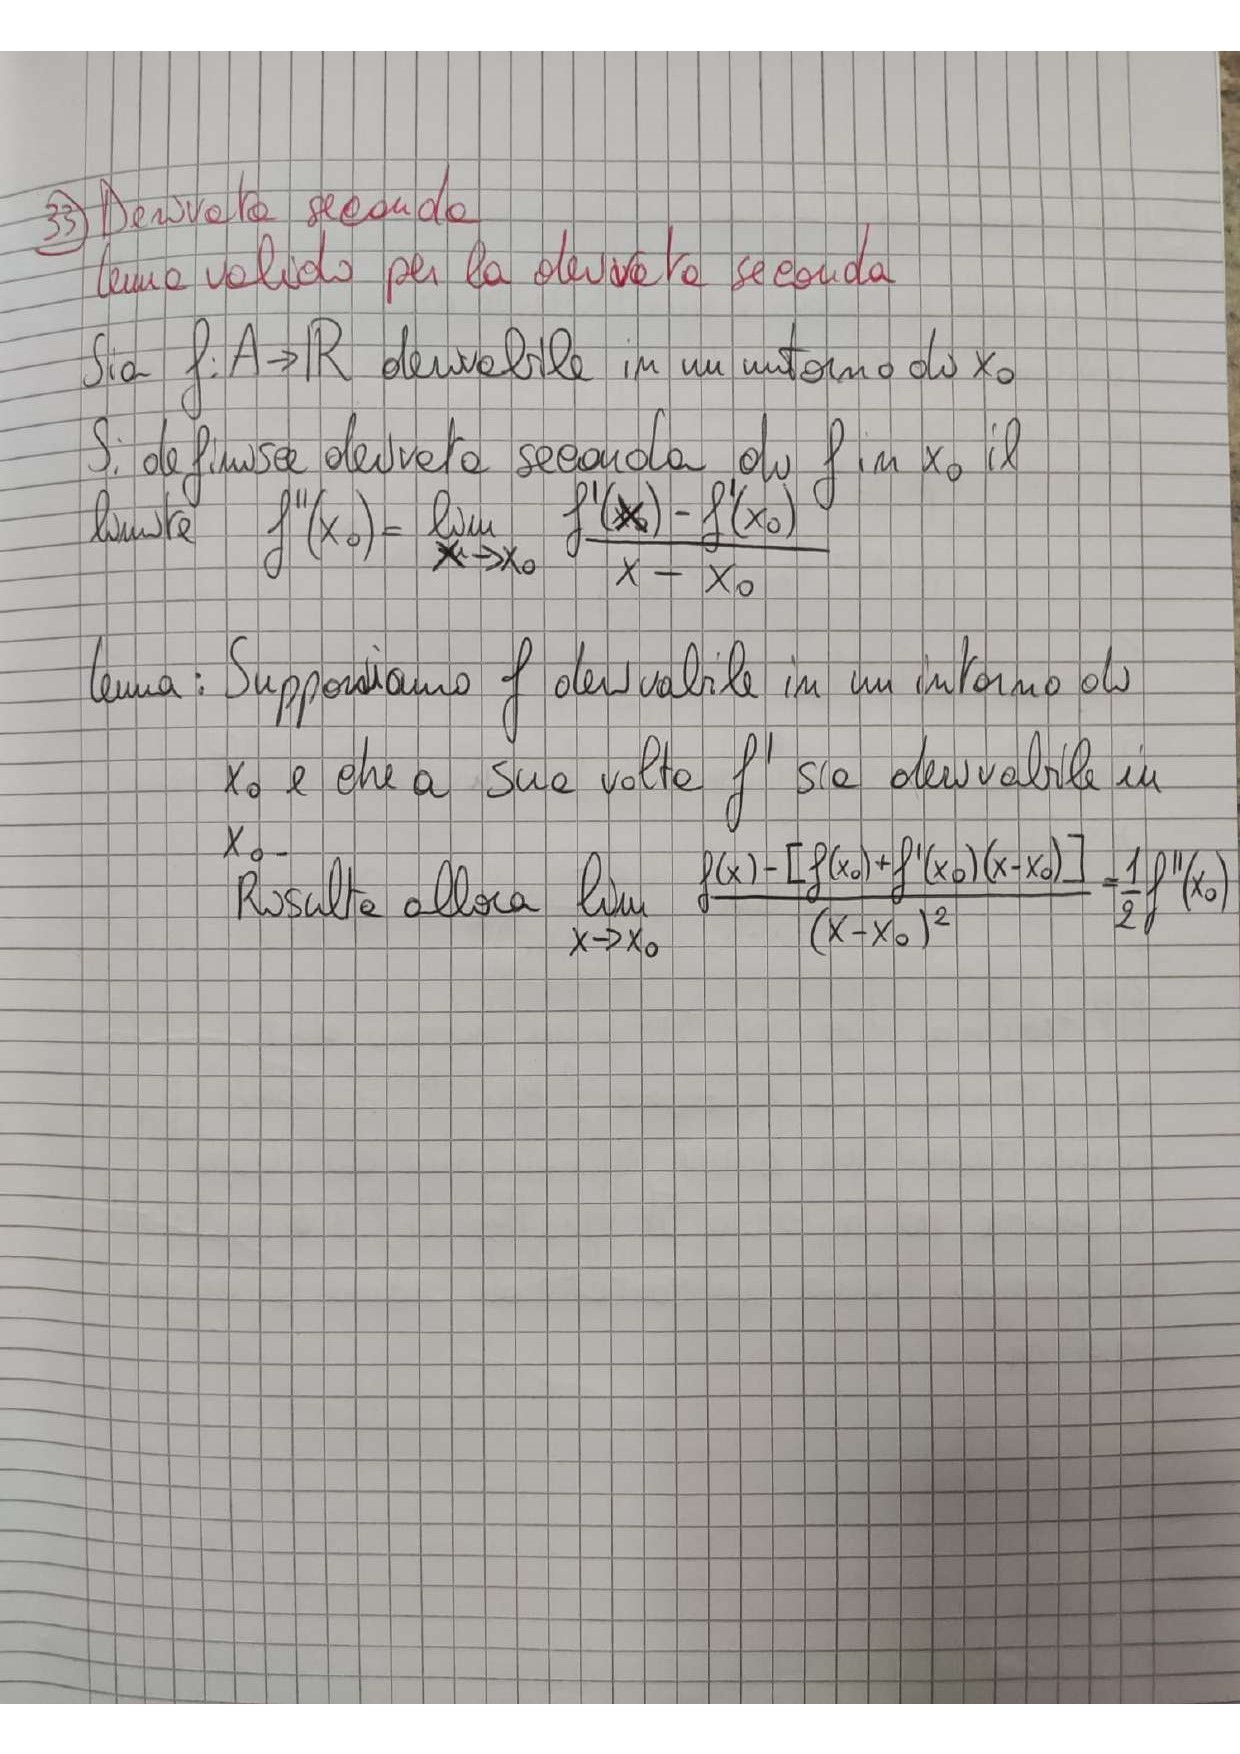 33) Derivata seconda
lemma valido per la derivata seconda
Sia f: A → ℝ derivabile in un intorno di x₀
Si definisce derivata seconda di f in x₀ il
limite f''(x₀) = lim x→x₀ (f'(x) - f'(x₀)) / (x - x₀)
lemma: Supponiamo f derivabile in un intorno di
x₀ e che a sua volta f' sia derivabile in
x₀.
Risulta allora lim x→x₀ (f(x) - [f(x₀) + f'(x₀)(x-x₀)]) / (x-x₀)² = 1/2 f''(x₀)